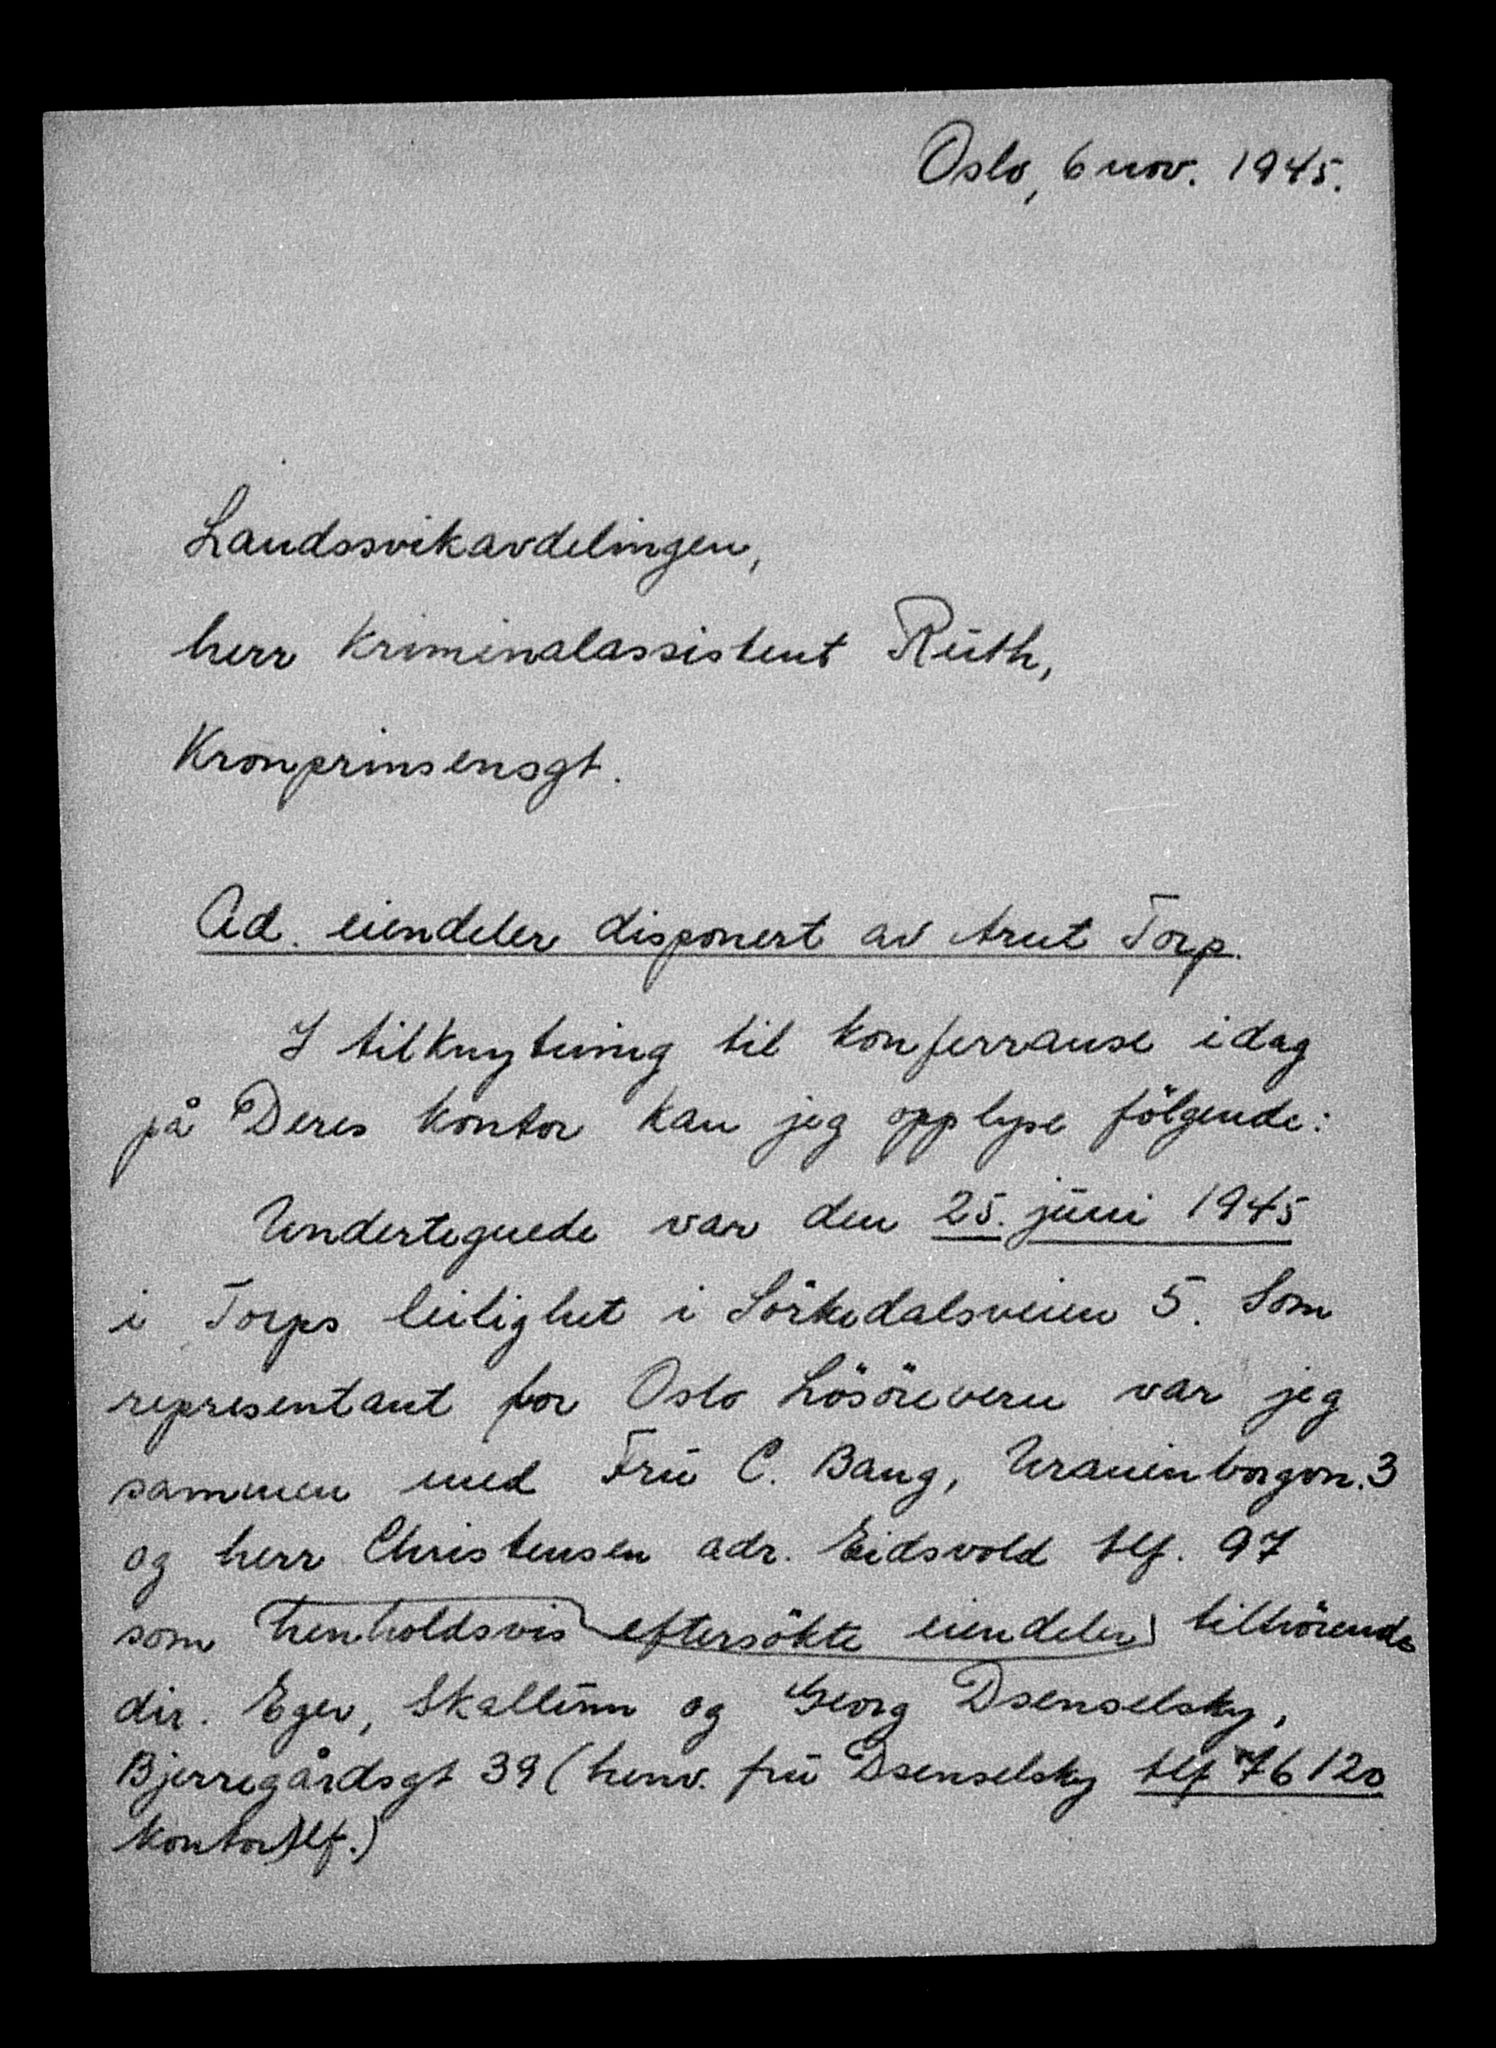 Oslo, 6 nov. 1945.
Landssvikavdelingen,
herr kriminalassistent Ruth,
Kronprinsensgt.
Ad. eiendeler disponert av Arut Torp.
I tilknytning til konferranse idag
på Deres kontor kan jeg opplyse følgende:
Undertegnede var den 25. juni 1945
i Torps leilighet i Sörkedalsveien 5. Som
representant for Oslo Lösörevern var jeg
sammen med Fru C. Bang, Uranienborgvn. 3
og herr Christensen adr. Eidsvold tlf. 97
som henholdsvis eftersökte eiendeler tilhörende
dir. Eger, Skallum og Georg Dsenselsky,
Bjerregårdsgt 39 (henv. fru Dsenselsky tlf 76120
kontortlf.)